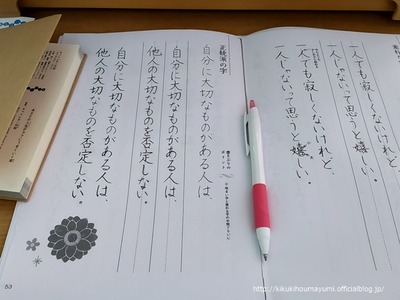 一人でも寂しくないけれど、
一人じゃないって思うと嬉しい。
一人でも寂しくないけれど、
一人じゃないって思うと嬉しい。
正統派の字
ポイント
自分に大切なものがある人は、
自分に大切なものがある人は、
他人の大切なものを否定しない。
自分に大切なものがある人は、
他人の大切なものを否定しない。
53
http://kikukihoumayumi.officialblog.jp/